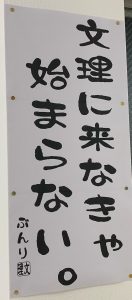 文理に来なきゃ
始まらない。
ぶんり